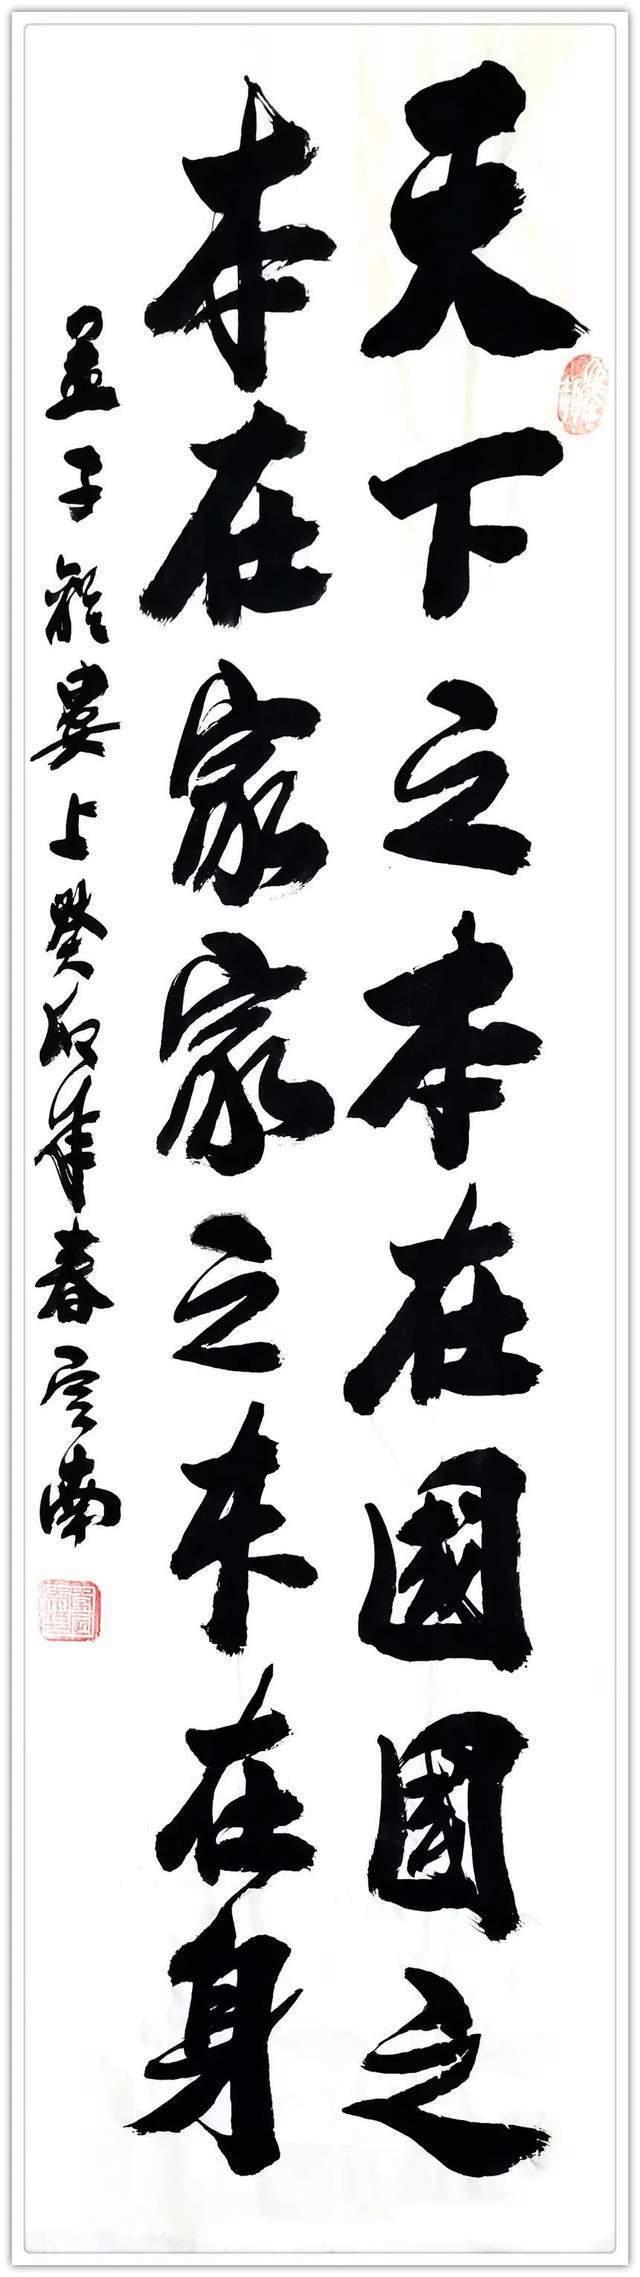 天下之本在國國之
本在家家之本在身
孟子離婁上癸卯年春雲南